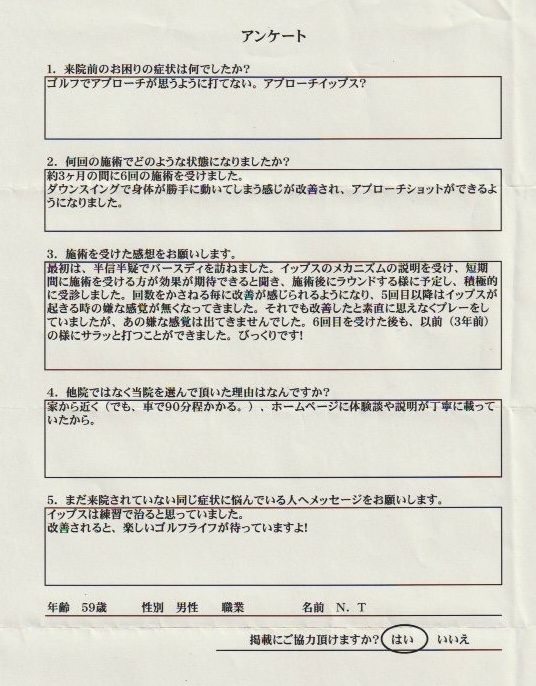 アンケート
1. 来院前のお困りの症状は何でしたか?
ゴルフでアプローチが思うように打てない。アプローチイップス?
2. 何回の施術でどのような状態になりましたか?
約3ヶ月の間に6回の施術を受けました。
ダウンスイングで身体が勝手に動いてしまう感じが改善され、アプローチショットができるよ
うになりました。
3. 施術を受けた感想をお願いします。
最初は、半信半疑でバースディを訪ねました。イップスのメカニズムの説明を受け、短期
間に施術を受ける方が効果が期待できると聞き、施術後にラウンドする様に予定し、積極的
に受診しました。回数をかさねる毎に改善が感じられるようになり、5回目以降はイップスが
起きる時の嫌な感覚が無くなってきました。それでも改善したと素直に思えなくプレーをし
ていましたが、あの嫌な感覚は出てきませんでした。6回目を受けた後も、以前(3年前)
の様にサラッと打つことができました。びっくりです!
4. 他院ではなく当院を選んで頂いた理由はなんですか?
家から近く(でも、車で90分程かかる。)、ホームページに体験談や説明が丁寧に載って
いたから。
5. まだ来院されていない同じ症状に悩んでいる人へメッセージをお願いします。
イップスは練習で治ると思っていました。
改善されると、楽しいゴルフライフが待っていますよ!
年齢 59歳 性別 男性 職業 名前 N. T
掲載にご協力頂けますか? はい いいえ